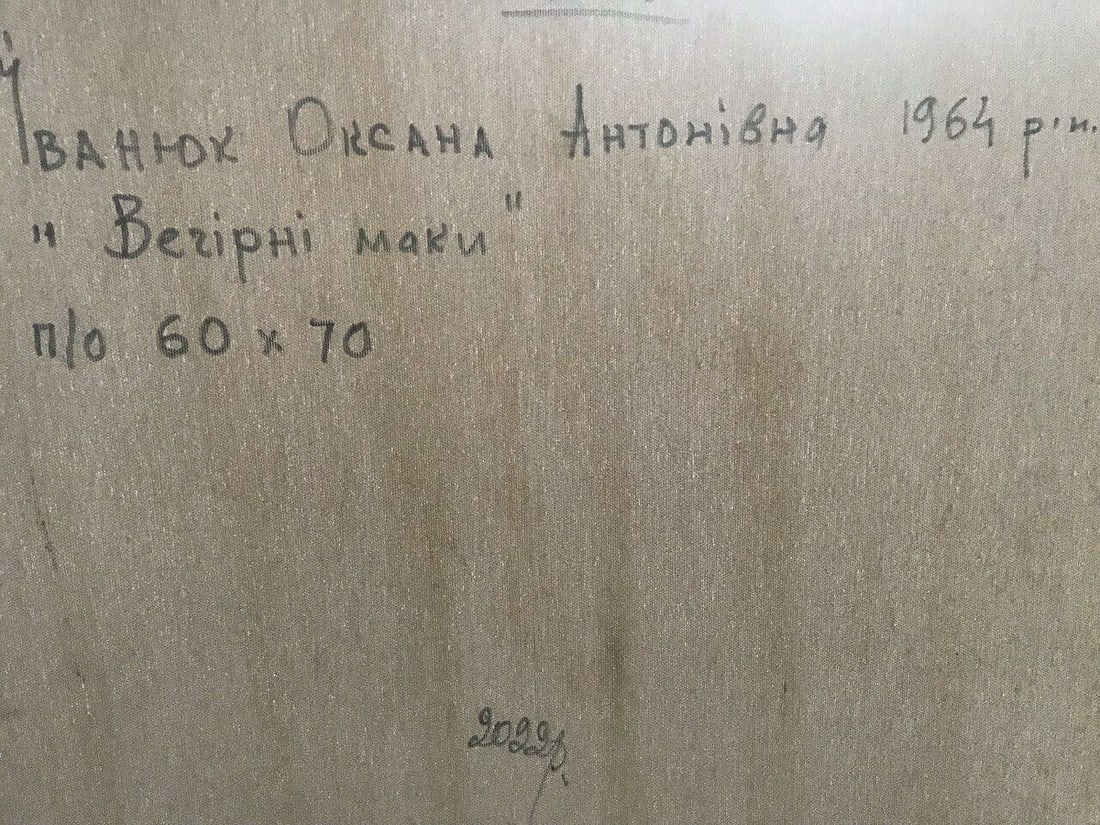 Іванюк Оксана Антонівна 1964 р.н.
"Вечірні маки"
п/о 60 х 70
2022р.